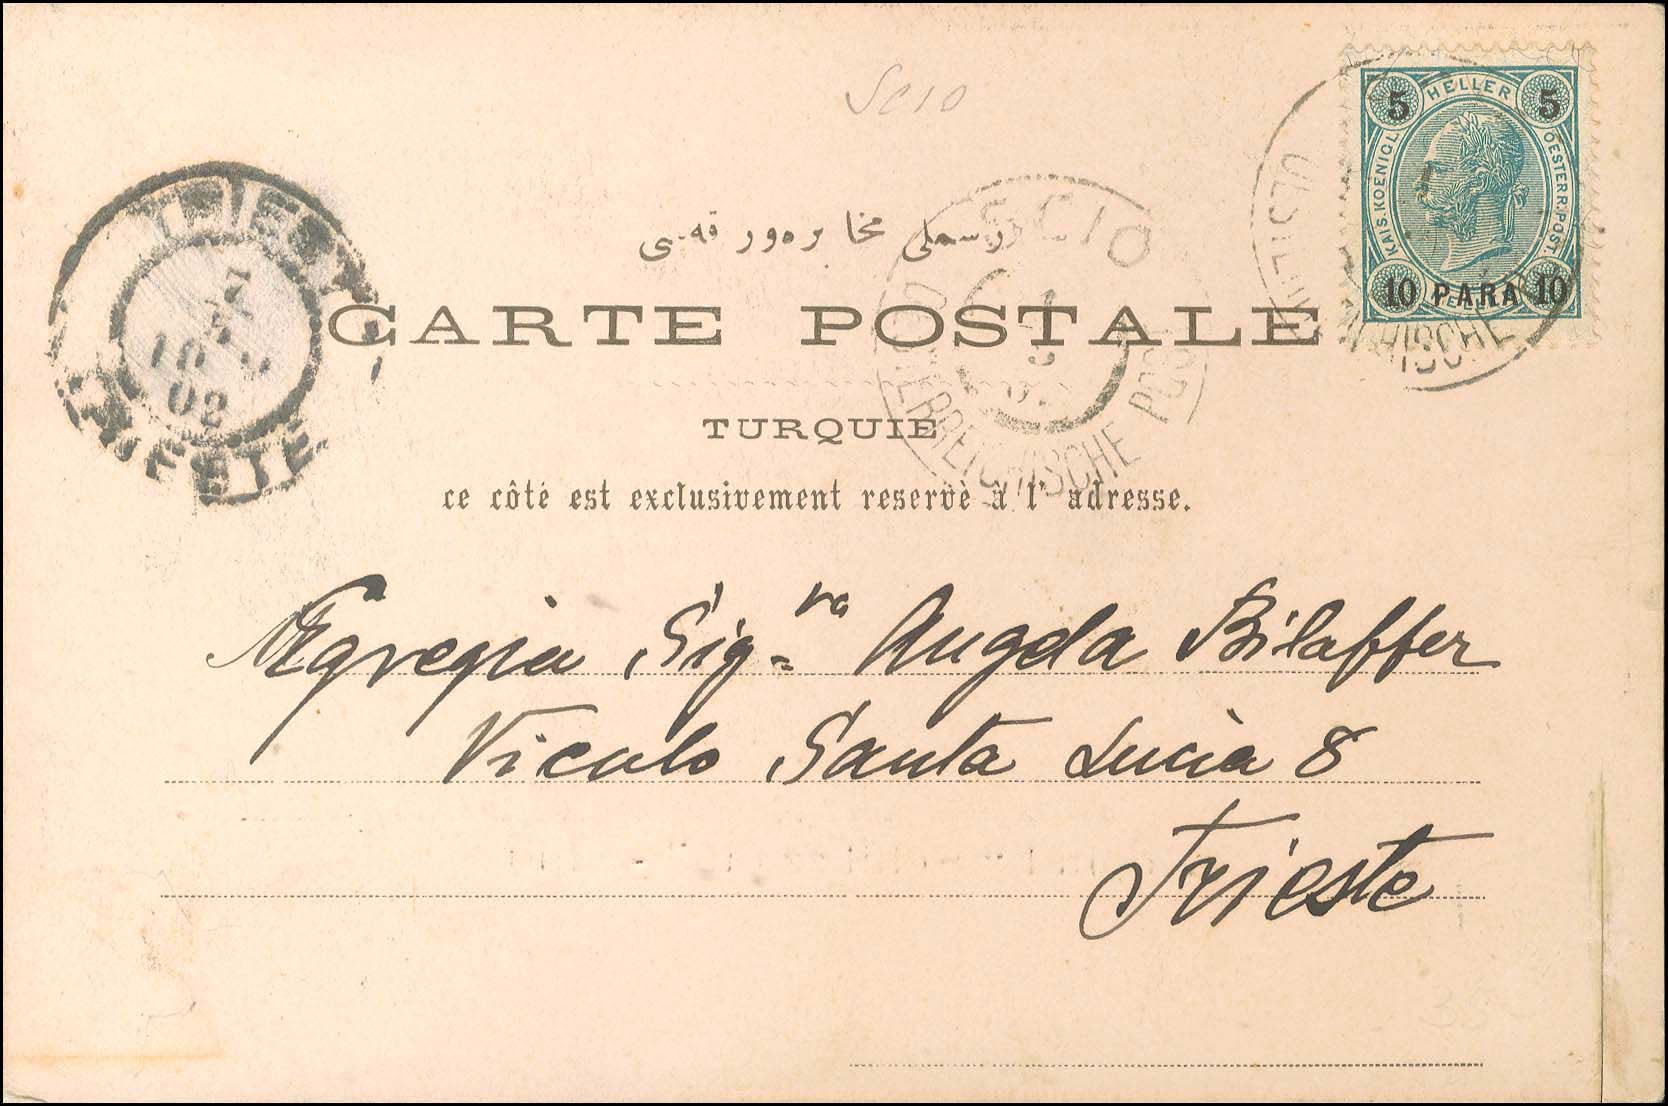 Scio
5 HELLER 5
KAIS. KOENIGL. OESTERR. POST.
10 PARA 10
SCIO
OESTERREICHISCHE POST
رسملی مخابره‌ور قه‌سی
CARTE POSTALE
TURQUIE
ce côté est exclusivement reservè à l' adresse.
TRIEST
7
02
TRIESTE
Egregia Sig.ra Angela Bilaffer
Vicolo Santa Lucia 8
Trieste
35